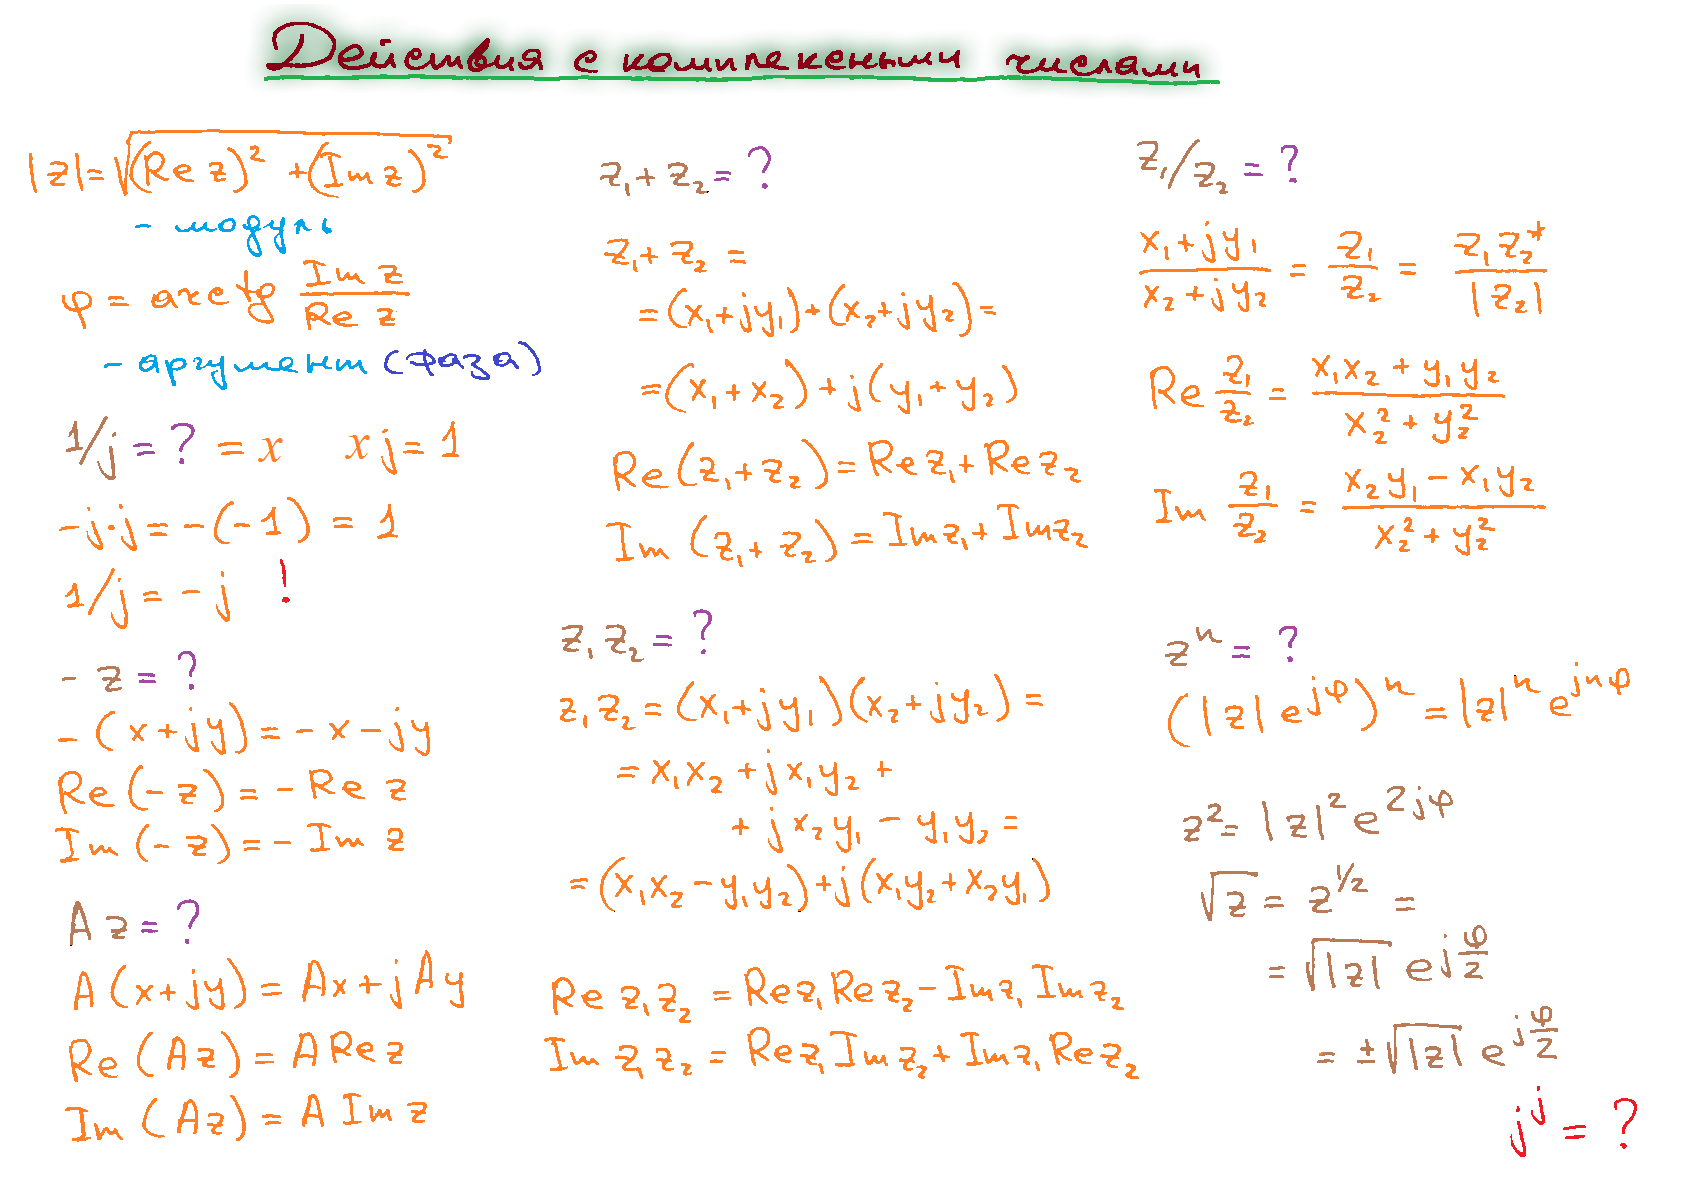 Действия с комплексными числами
|z|=√((Re z)² + (Im z)²)
- модуль
φ = arctg Im z / Re z
- аргумент (фаза)
1/j = ? = x   xj = 1
-j·j = -(-1) = 1
1/j = -j !
-z = ?
-(x+jy) = -x-jy
Re(-z) = -Re z
Im(-z) = -Im z
Az = ?
A(x+jy) = Ax+jAy
Re(Az) = A Re z
Im(Az) = A Im z
z₁+z₂ = ?
z₁+z₂ =
=(x₁+jy₁)+(x₂+jy₂)=
=(x₁+x₂)+j(y₁+y₂)
Re(z₁+z₂)=Re z₁+Re z₂
Im(z₁+z₂)=Im z₁+Im z₂
z₁z₂ = ?
z₁z₂ = (x₁+jy₁)(x₂+jy₂) =
= x₁x₂ + jx₁y₂ +
+ jx₂y₁ - y₁y₂ =
=(x₁x₂-y₁y₂)+j(x₁y₂+x₂y₁)
Re z₁z₂ = Re z₁ Re z₂ - Im z₁ Im z₂
Im z₁z₂ = Re z₁ Im z₂ + Im z₁ Re z₂
z₁/z₂ = ?
(x₁+jy₁)/(x₂+jy₂) = z₁/z₂ = z₁z₂*/|z₂|
Re z₁/z₂ = (x₁x₂+y₁y₂)/(x₂²+y₂²)
Im z₁/z₂ = (x₂y₁-x₁y₂)/(x₂²+y₂²)
zⁿ = ?
(|z|e^{jφ})ⁿ = |z|ⁿ e^{jnφ}
z² = |z|² e^{2jφ}
√z = z^{1/2} =
= √|z| e^{jφ/2}
= ±√|z| e^{jφ/2}
j^j = ?